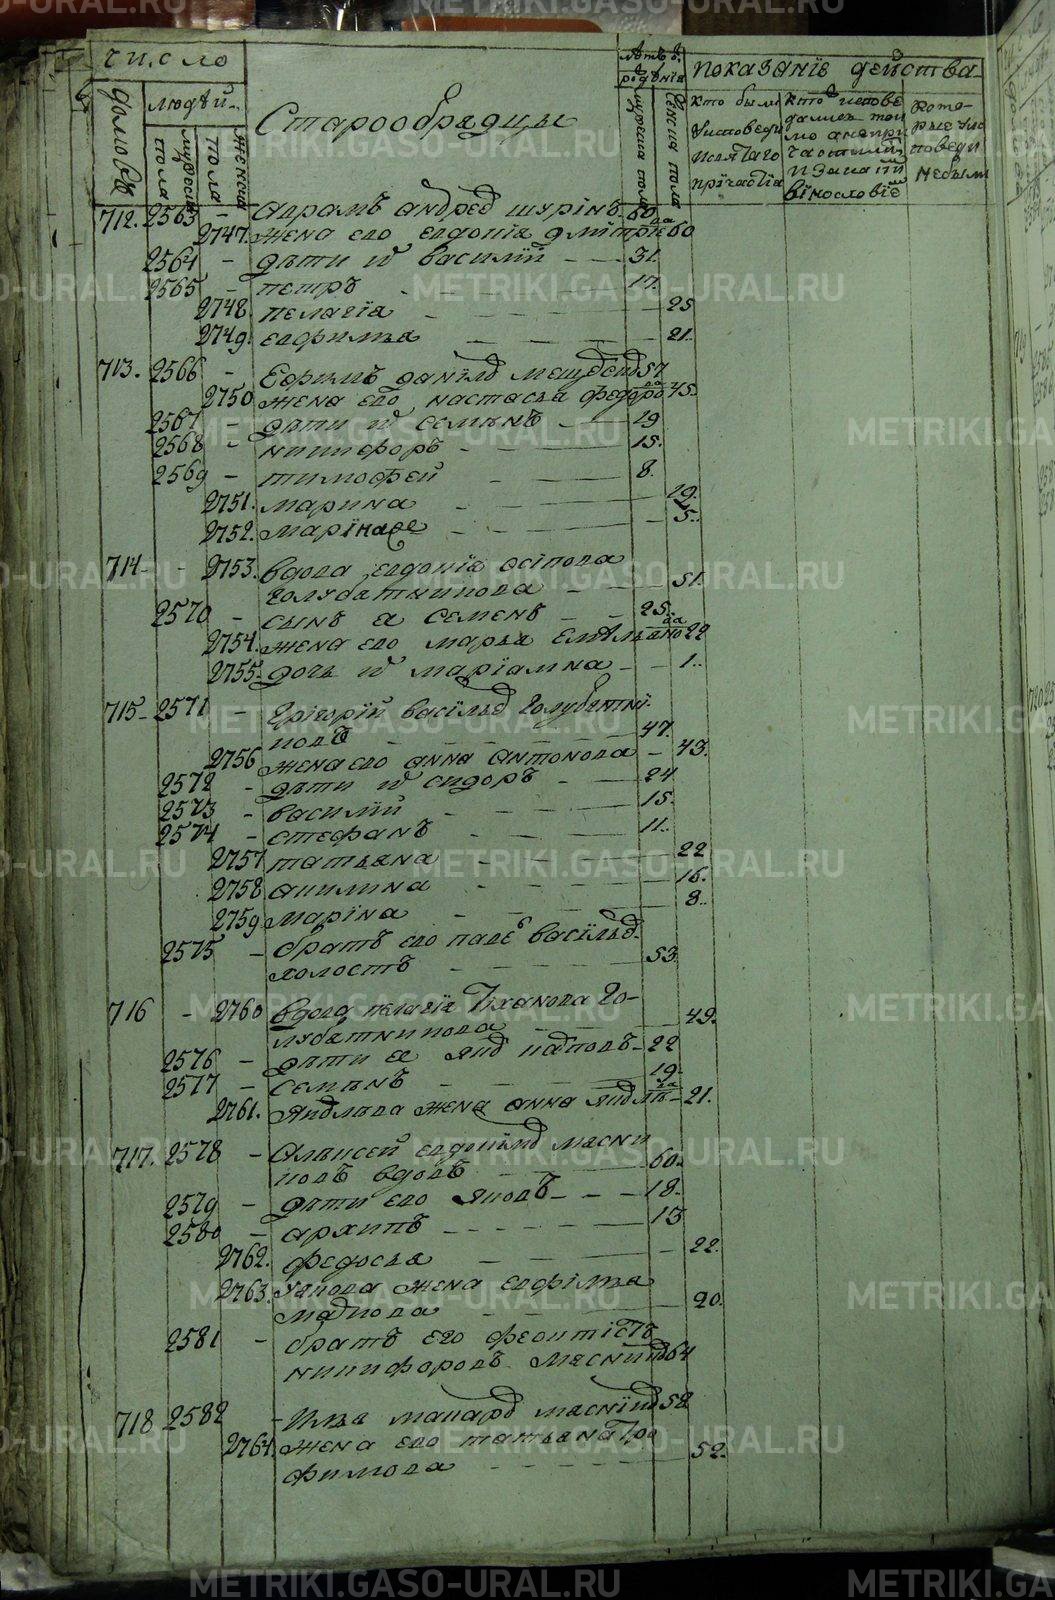 число
Старообрядцы
лѣтъ ѿ рожденїя
показанїе действа
домовъ
людей
мужеска пола
женска пола
мужеска пола
женска пола
кто были
у исповеди
и святаго
причастїа
кто исповедались
токмо
а не при
частились
и за какїй
винословїе
которые у исповеди
не были
712. 2563 - Аврамъ андреев шурінъ - 60
2747. жена его евдокїа дмитриева 60
2564 - дѣти их василий - 31.
2565 - петръ - 17.
2748. пелагїа - 25
2749. евфимьа - 21.
713. 2566 - Ефимъ данилов 57
2750 жена его настасьа федорова 45.
2567 - дѣти их семенъ - 19
2568 - никифоръ - 15.
2569 - тимофей - 8.
2751. марина - 19.
2752. марїнаже - 5.
714 - 2753. вдова евдокїа осїпова
голубатникова - 51.
2570 - сынъ ея семенъ - 25.
2754. жена его марьа емельанова 22
2755. дочь их марїамна - 1.
715 - 2571 - Григорїй васільев голубатни
ковъ - 47.
2756 жена его анна антонова - 43.
2572 - дѣти их сидоръ - 24
2573 - василїй - 15.
2574 - стефанъ - 11.
2757 татьана - 22
2758 акилина - 16.
2759 марїна - 8.
2575 - братъ его васільев
холостъ - 53
716 - 2760 вдова пелагїа тіханова го-
лубатникова - 49.
2576 - дѣти ея - 22
2577 - семенъ - 19.
2761. жена анна - 21.
717. 2578 - Алексей евдокимов масни
ковъ вдовъ - 60.
2579 - дѣти его яковъ - 18.
2580 - архипъ - 13
2762. федосьа - 22.
2763. якова жена евфімьа
- 20.
2581 - братъ его феоктістъ
никифоровъ масников 64
718 2582 - Ильа макаров масников 58
2764. жена его татьана тро
фимова - 52.
METRIKI.GASO-URAL.RU